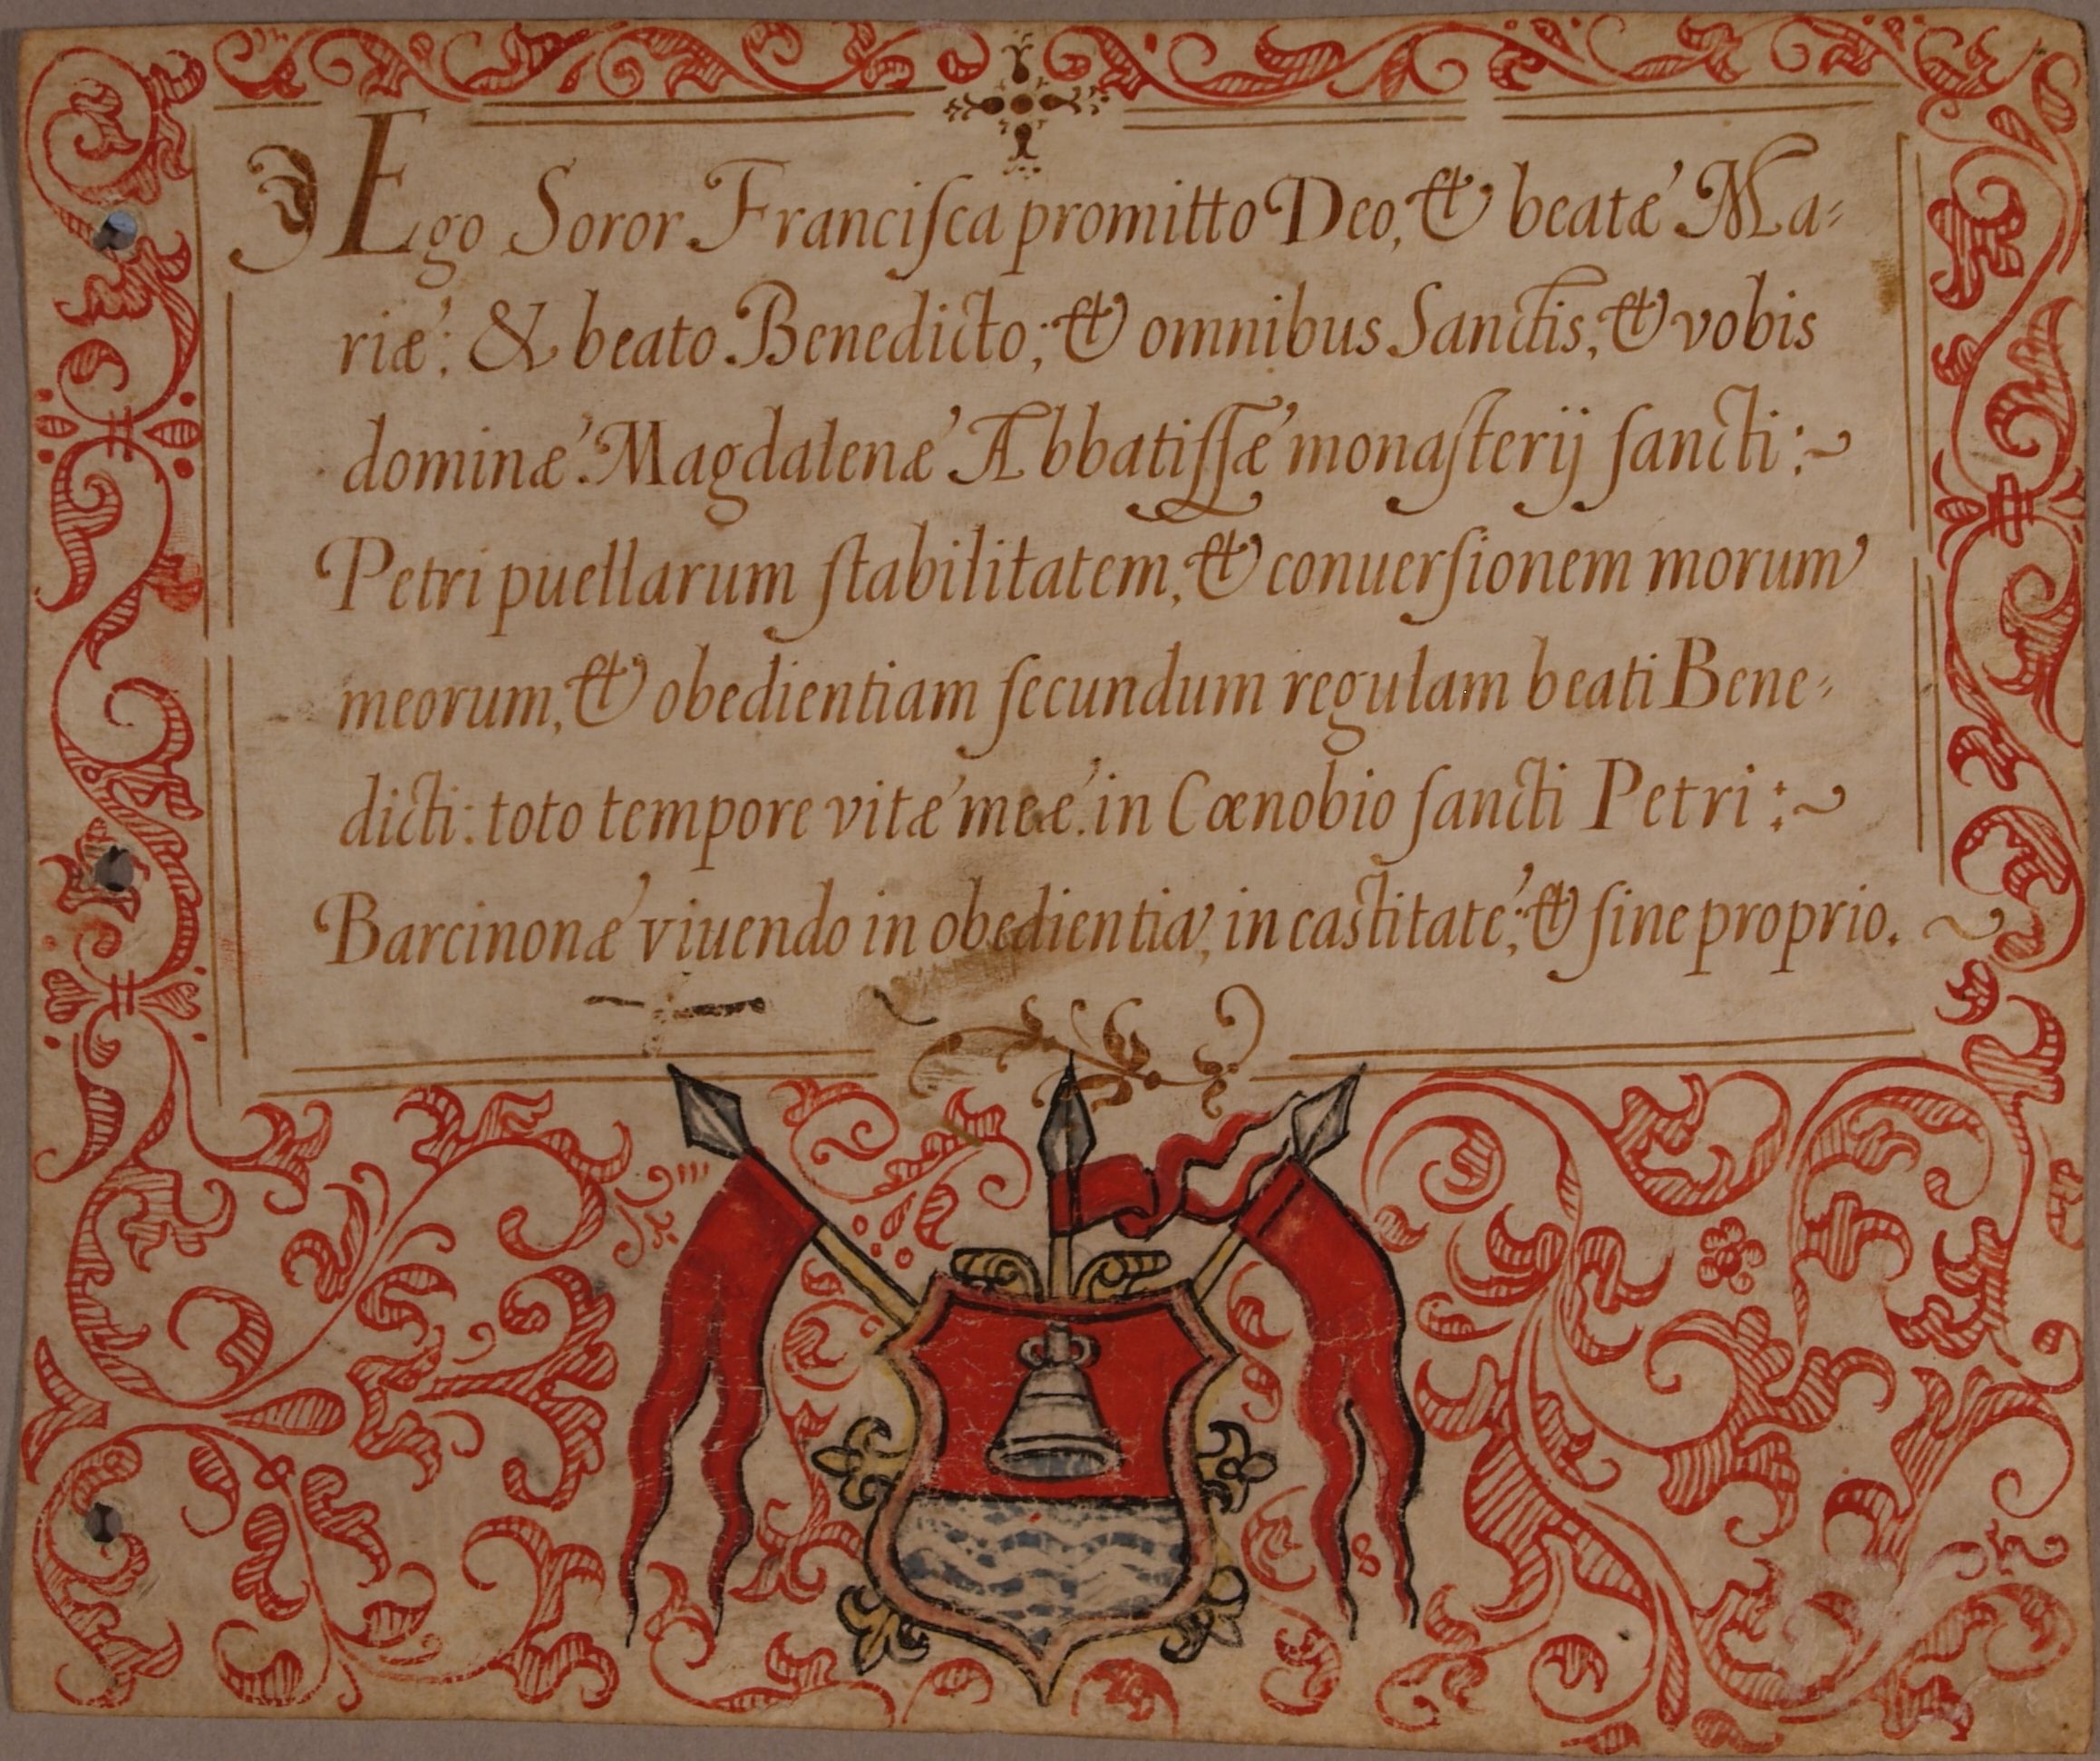 Ego Soror Franciſca promitto Deo, & beatæ Ma-
riæ: & beato Benedicto; & omnibus Sanctis, & vobis
dominæ Magdalenæ Abbatiſſæ monaſterij ſancti:~
Petri puellarum ſtabilitatem, & conuerſionem morum
meorum, & obedientiam ſecundum regulam beati Bene-
dicti: toto tempore vitæ meæ in Cœnobio ſancti Petri:~
Barcinonæ viuendo in obedientia, in castitate, & ſine proprio.